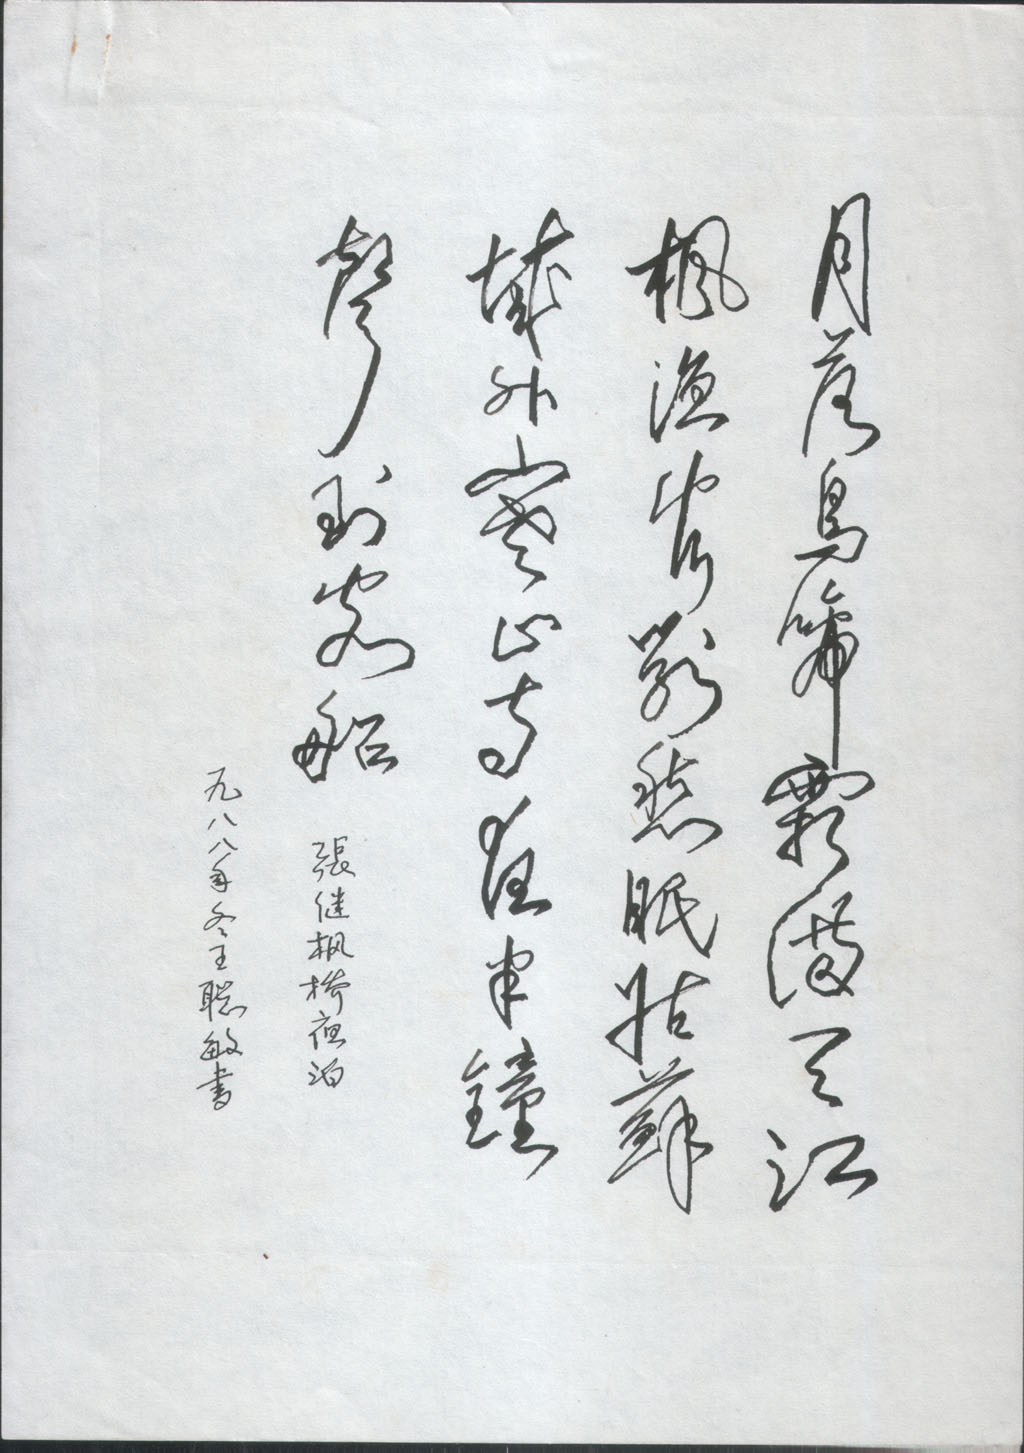 月落烏啼霜满天江
枫渔火對愁眠姑蘇
城外寒山寺夜半鐘
聲到客船 張继枫桥夜泊
九八八年冬王聪敏書